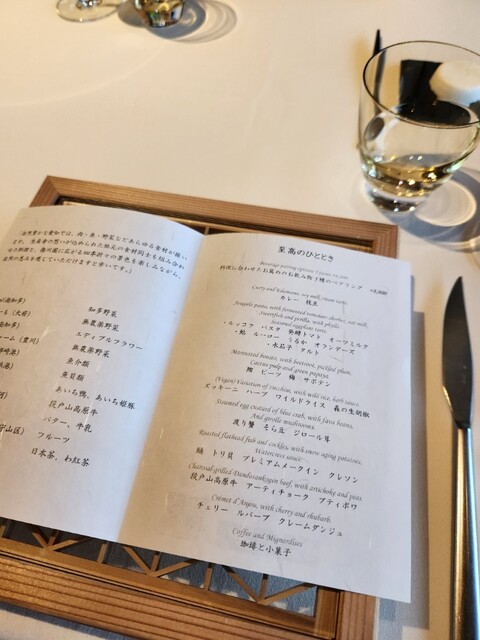 「自然豊かな愛知では、肉・魚・野菜などあらゆる食材が揃い
ます。生産者の想いが込められた地元の食材同士を組み合わ
せた料理と、徳川園に広がる四季折々の景色を楽しみながら、
自然の恵みを感じていただけますと幸いです。」
知多野菜
無農薬野菜
エディブルフラワー
無農薬野菜
魚介類
魚貝類
あいち鴨、あいち姫豚
段戸山高原牛
バター、牛乳
フルーツ
日本茶、わ紅茶
至高のひととき
Beverage pairing options 3 kinds
料理に合わせたお薦めのお飲み物3種のペアリング
Curry and Edamame, soy milk,
カレー 枝豆
Arugula pasta, with fermented tomato sherry, oat milk,
Sweetfish and perilla, with phyllo.
Seasonal eggplant tarte.
・ルッコラ パスタ 発酵トマト オーツミルク
・鮎 ルーロー うるか オランデーズ
・水茄子 タルト
Marinated bonito, with beetroot, pickled plum,
Cactus pulp and green papaya.
鰹 ビーツ 梅 サボテン
(Vegan) Variation of zucchini, with wild rice, herb sauce.
ズッキーニ ハーブ ワイルドライス 森の生胡椒
Steamed egg custard of blue crab, with fava beans,
And girolle mushrooms.
渡り蟹 そら豆 ジロール茸
Roasted flathead fish and cockles, with snow aging potatoes,
Watercress sauce.
鯒 トリ貝 プレミアムメークイン クレソン
Charcoal-grilled Dandosankogen beef, with artichoke and peas.
段戸山高原牛 アーティチョーク プティポワ
Crémet d'Anjou, with cherry and rhubarb.
チェリー ルバーブ クレームダンジュ
Coffee and Mignardises
珈琲と小菓子